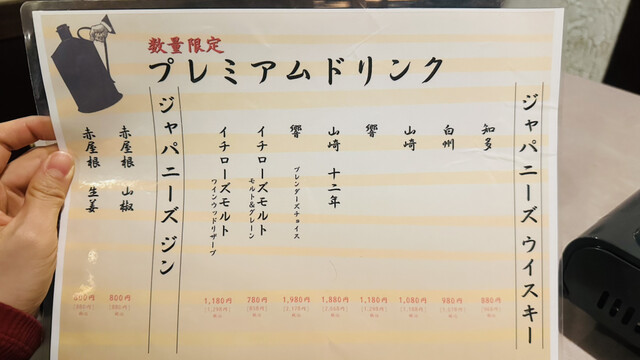 数量限定
プレミアムドリンク
ジャパニーズウイスキー
知多
880円
白州
980円
山崎
1,080円
響
1,180円
山崎 十二年
1,880円
響
ブレンダーズチョイス
1,980円
イチローズモルト
モルト&グレーン
780円
イチローズモルト
ワインウッドリザーブ
1,180円
ジャパニーズジン
赤屋根 山椒
800円
赤屋根 生姜